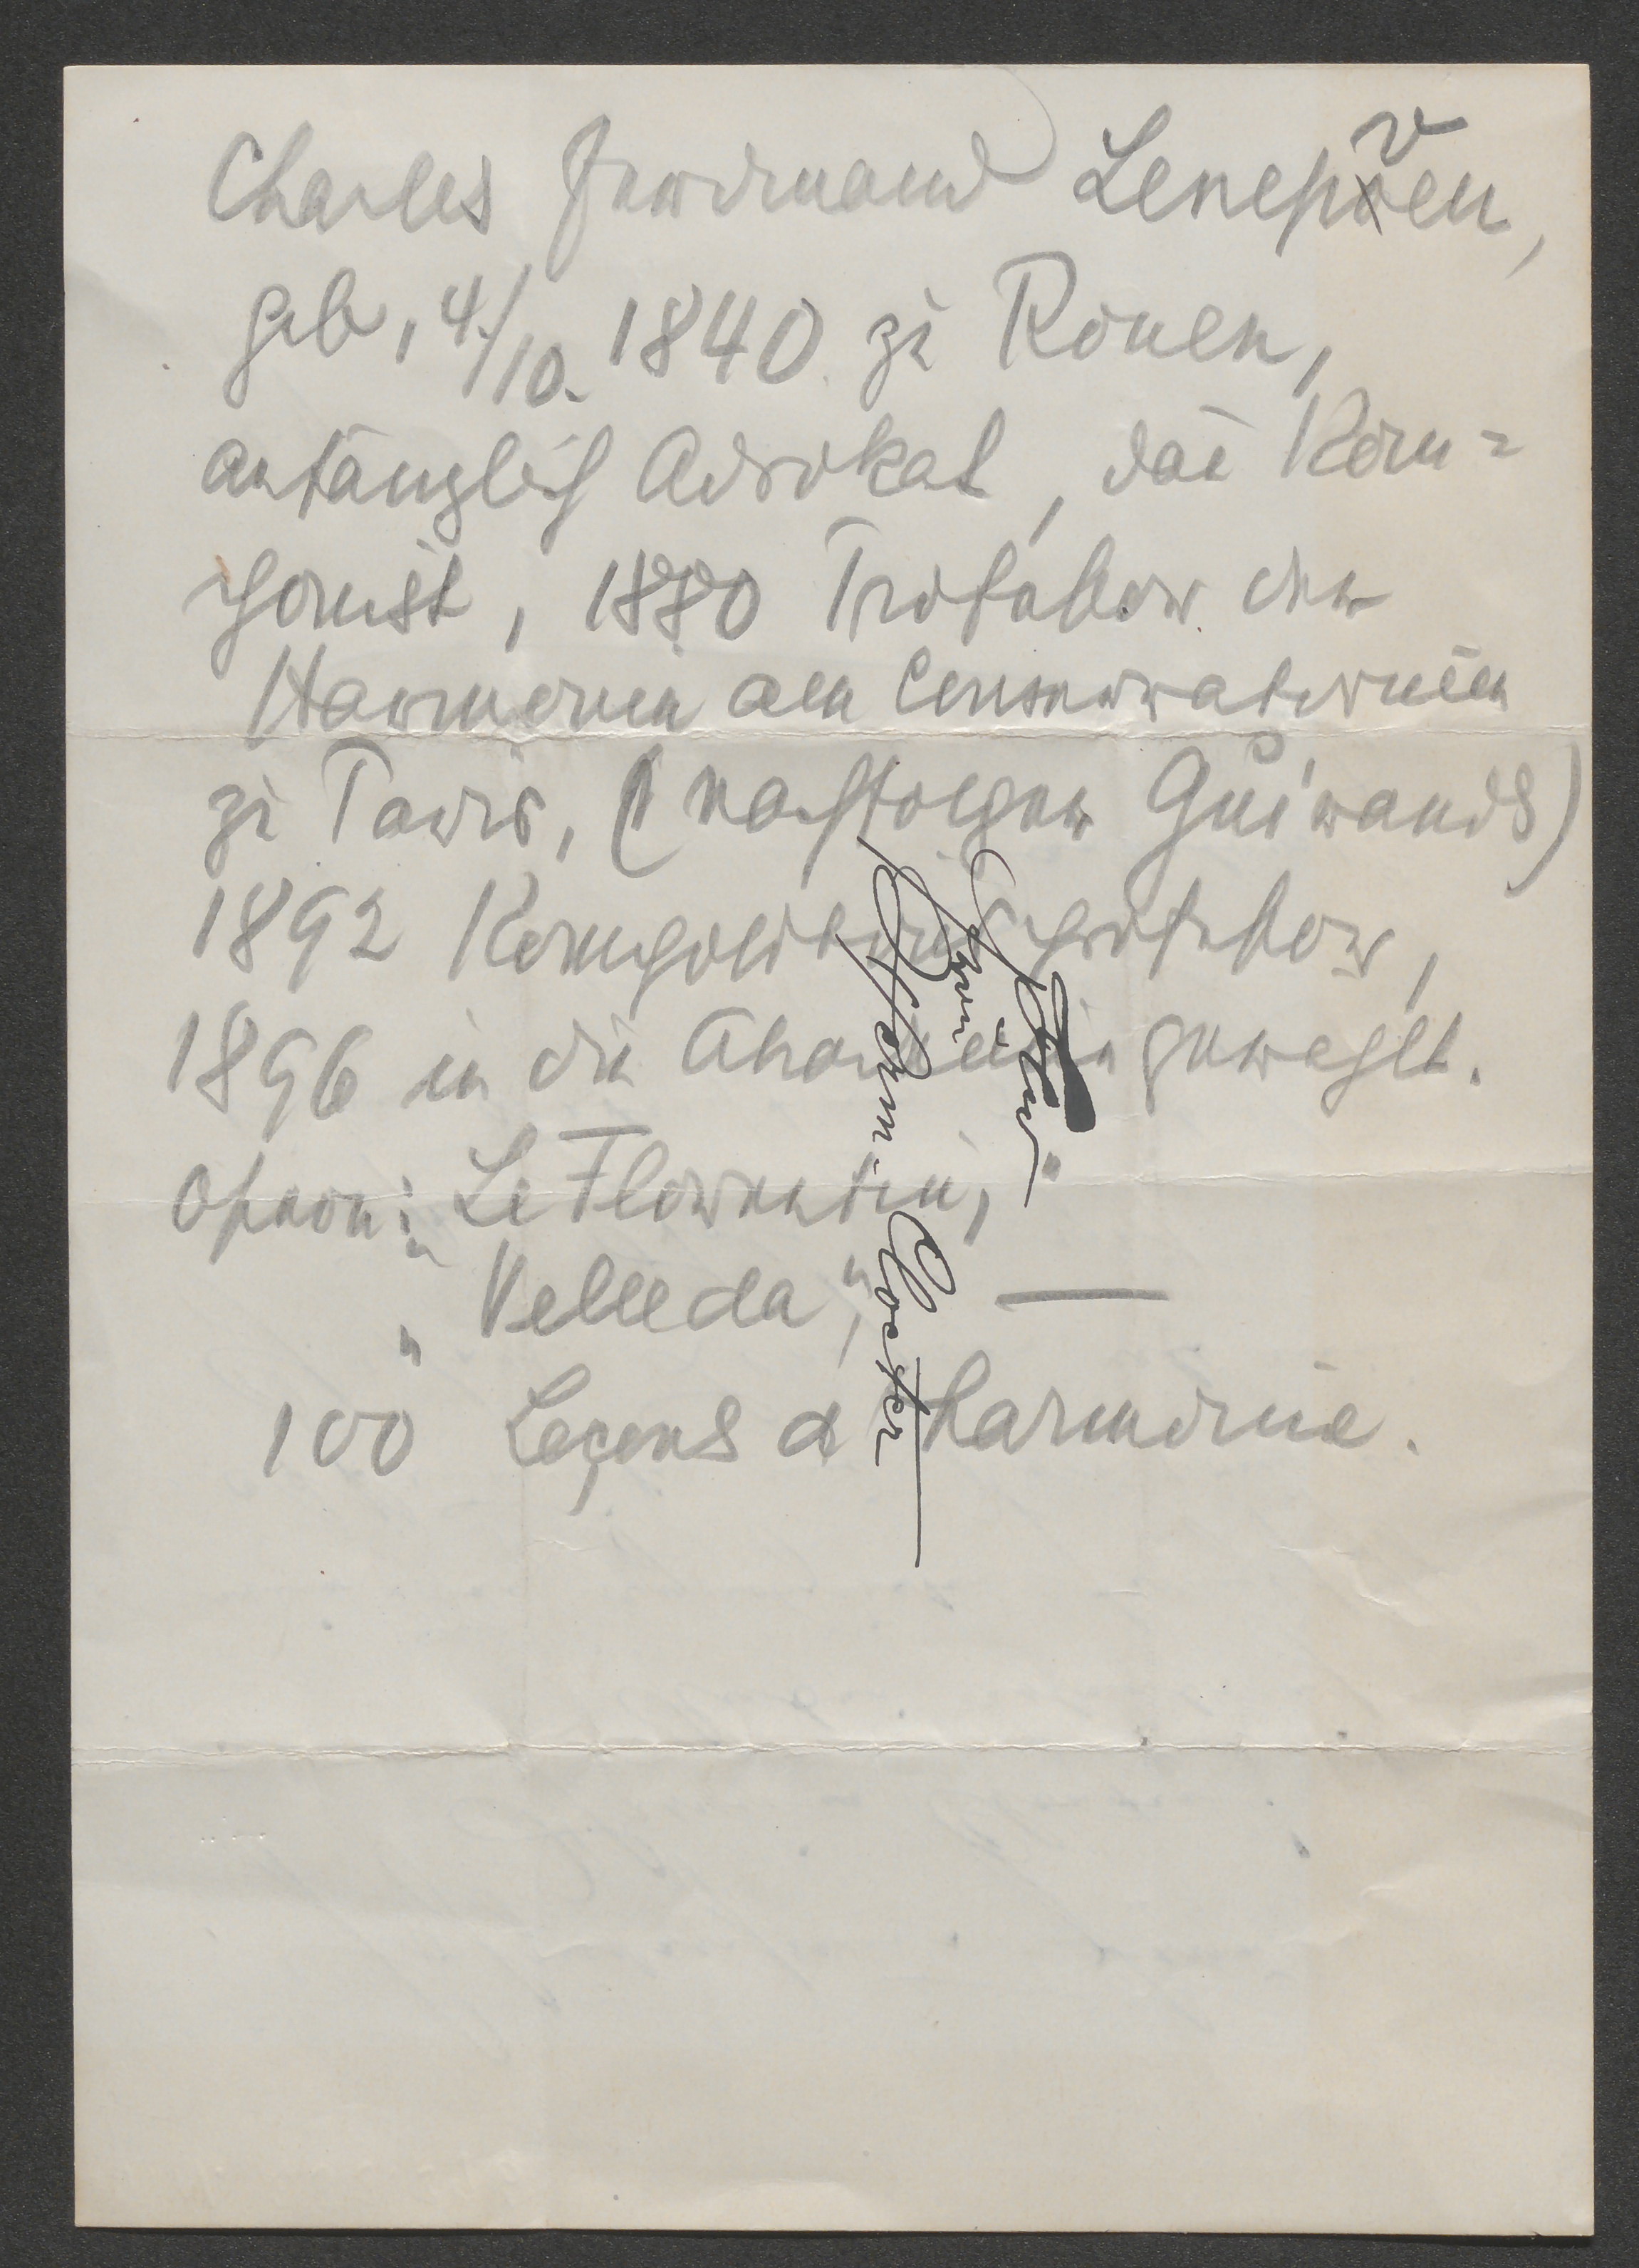 Charles Ferdinand Lenepveu,
geb, 4./10. 1840 zu Rouen,
anfänglich Advokat, dan Kom=
ponist, 1880 Professor der
Harmonie am Conservatorium
zu Paris, (Nachfolger Guirauds)
1892 Kompositionsprofessor,
1896 in die Akademie gewählt.
Opern: „Le Florentin,
„Velleda", —
100 Leçons d harmonie.
Herm. Closter